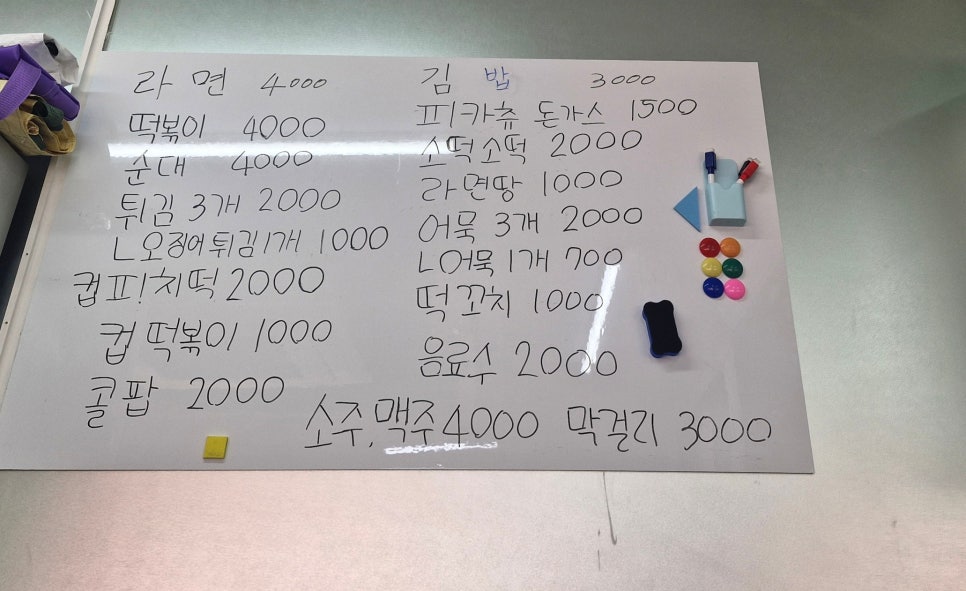 라면 4000
떡볶이 4000
순대 4000
튀김 3개 2000
ㄴ오징어튀김1개 1000
컵피!치떡 2000
컵떡볶이 1000
콜팝 2000
김밥 3000
피카츄 돈가스 1500
소떡소떡 2000
라면땅 1000
어묵 3개 2000
ㄴ어묵 1개 700
떡꼬치 1000
음료수 2000
소주,맥주 4000 막걸리 3000